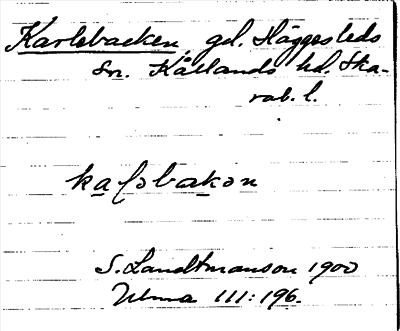 Karlebacken, gd. Häggesleds
sn. Kållands hd. Ska-
rab. l.
S. Landtmanson 1900
Ulma 111:196.